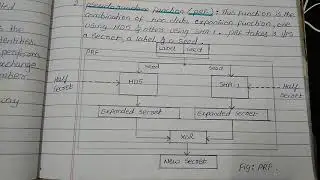 Pseudorandom Function (PRF) : This function is the
combination of two data expansion function, one
using MD5 & others using SHA-1. PRF takes 3 i/ps
a secret, a label, & a seed.
PRF
Label seed
seed seed
Half
Secret
MD5
SHA-1
Half
Secret
Expanded Secret
Expanded Secret
XOR
New Secret
Fig: PRF.
is the
exchange
way